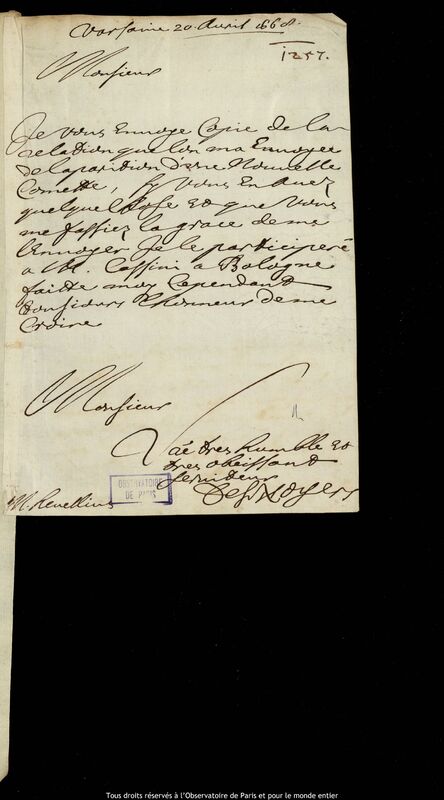 Varsavie 20 Avril 1668.
1257.
Monsieur
Je vous Ennoye Copie de la
relation que lon ma Ennoyee
de laparition d'une Nouvelle
Comette, sy vous En avez
quelque chose Et que vous
me fassiez la grace de me
l'Ennoyer Je le participeré
a M. Cassini a Bologne
faitte moy Cependant
tousiours l'honneur de me
Croire
Monsieur
Vre tres humble Et
tres obeissant
serviteur
DesNoyers
M. Hevellius
OBSERVATOIRE
DE PARIS
Tous droits réservés à l'Observatoire de Paris et pour le monde entier